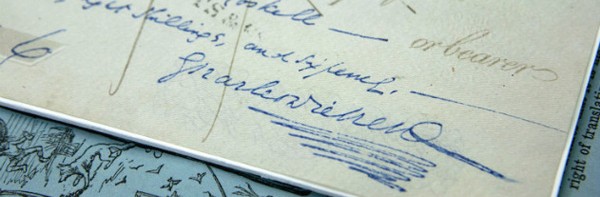 or bearer
Shillings, and sixpence.
Charles Dickens
right of translation